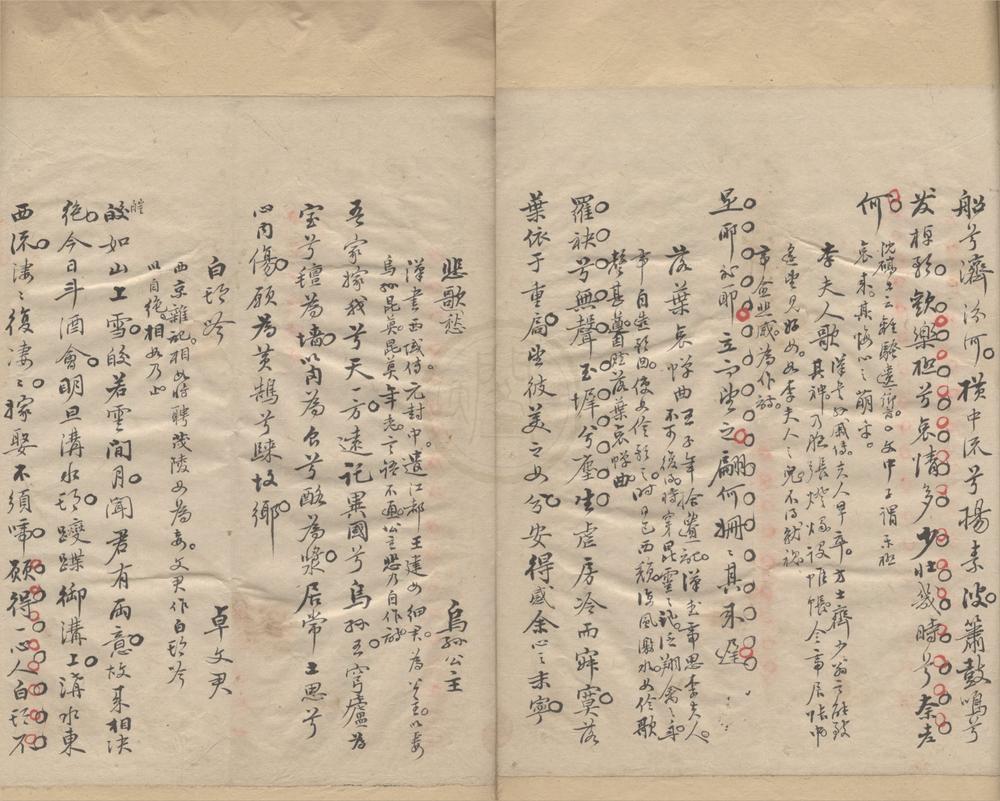 船兮濟汾河橫中流兮揚素波簫鼓鳴兮
发棹歌歡樂極兮哀情多少壯幾時兮奈老
何
沈歸愚云離騷遺響文中子謂樂極
哀来其悔心之萌乎
李夫人歌
漢書外戚傳夫人早卒方士齊少翁言能致
其神乃夜張燈燭設帷帳令帝居他帳
遙望見好女如李夫人之皃不得就視
帝益悲感為作詩
是耶非耶立而望之翩何姍姍其来遲
落葉哀蟬曲
王子年拾遺記漢武帝思李夫人
不可復得時穿昆靈之池泛翔禽之舟
帝自造歌曲使女伶歌之時日已西頹凉風激水女伶歌
聲甚遒因賦落葉哀蟬曲
羅袂兮無聲玉墀兮塵生虛房冷而寂寞落
葉依于重扃望彼美之女兮安得感余心之未寧
悲歌愁
烏孫公主
漢書西域傳元封中遣江都王建女細君為公主以妻
烏孫昆莫昆莫年老言語不通公主悲乃自作歌
吾家嫁我兮天一方遠託異國兮烏孫王穹廬為
室兮氊為墻以肉為食兮酪為漿居常土思兮
心內傷願為黃鵠兮歸故鄉
白頭吟
卓文君
西京雜記相如將聘茂陵女為妾文君作白頭吟
以自絕相如乃止
皚如山上雪皎若雲間月聞君有兩意故来相決
絕今日斗酒會明旦溝水頭躞蹀御溝上溝水東
西流淒淒復淒淒嫁娶不須啼願得一心人白頭不